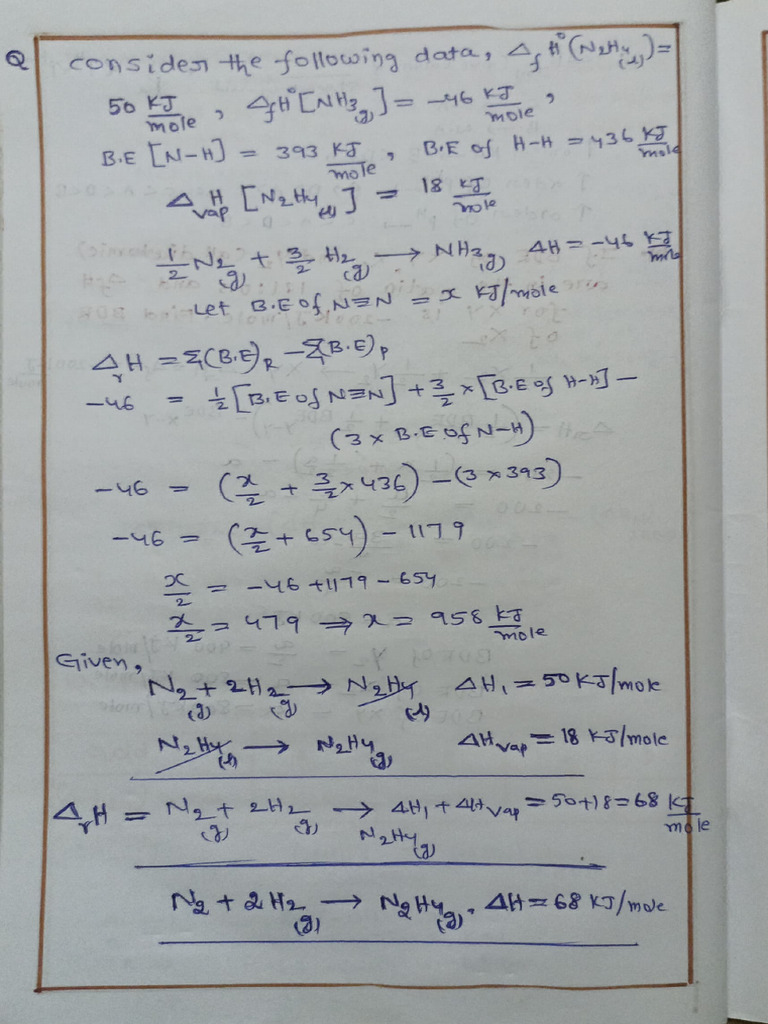 Q consider the following data, Δ_f H°(N2H4(l)) =
50 KJ/mole, Δ_f H°[NH3(g)] = -46 KJ/mole,
B.E [N-H] = 393 KJ/mole, B.E of H-H = 436 KJ/mole
Δ_vap H [N2H4(l)] = 18 KJ/mole
1/2 N2(g) + 3/2 H2(g) → NH3(g) ΔH = -46 KJ/mole
Let B.E of N≡N = x KJ/mole
Δ_r H = Σ(B.E)R - Σ(B.E)P
-46 = 1/2 [B.E of N≡N] + 3/2 × [B.E of H-H] -
(3 × B.E of N-H)
-46 = (x/2 + 3/2 × 436) - (3 × 393)
-46 = (x/2 + 654) - 1179
x/2 = -46 + 1179 - 654
x/2 = 479 ⇒ x = 958 KJ/mole
Given,
N2(g) + 2H2(g) → N2H4(l) ΔH1 = 50 KJ/mole
N2H4(l) → N2H4(g) ΔHvap = 18 KJ/mole
Δ_r H = N2(g) + 2H2(g) → ΔH1 + ΔHvap = 50+18 = 68 KJ/mole
N2H4(g)
N2 + 2H2(g) → N2H4(g), ΔH = 68 KJ/mole